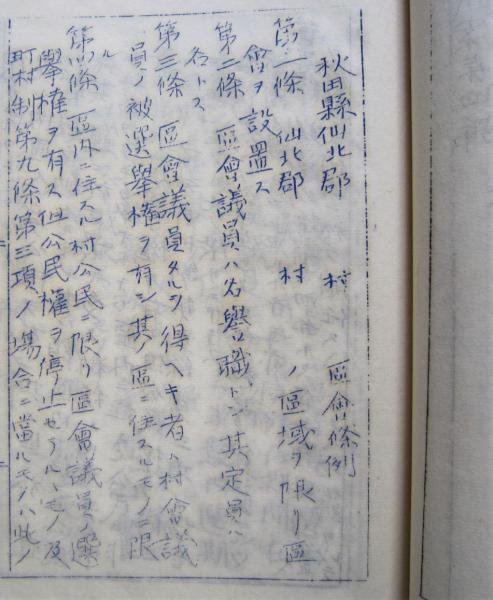 秋田縣仙北郡　村　區會條例
第一條　仙北郡　村ノ區域ヲ限リ區
會ヲ設置ス
第二條　區會議員ハ名譽職トシ其定員ハ
名トス
第三條　區會議員タルヲ得ヘキ者ハ村會議
員ノ被選擧權ヲ有シ其ノ區ニ住スルモノニ限
ル
第四條　區内ニ住スル村公民ニ限リ區會議員ノ選
擧權ヲ有ス但公民權ヲ停止セラルヽモノ及
町村制第九條第三項ノ場合ニ當ルモノハ此ノ